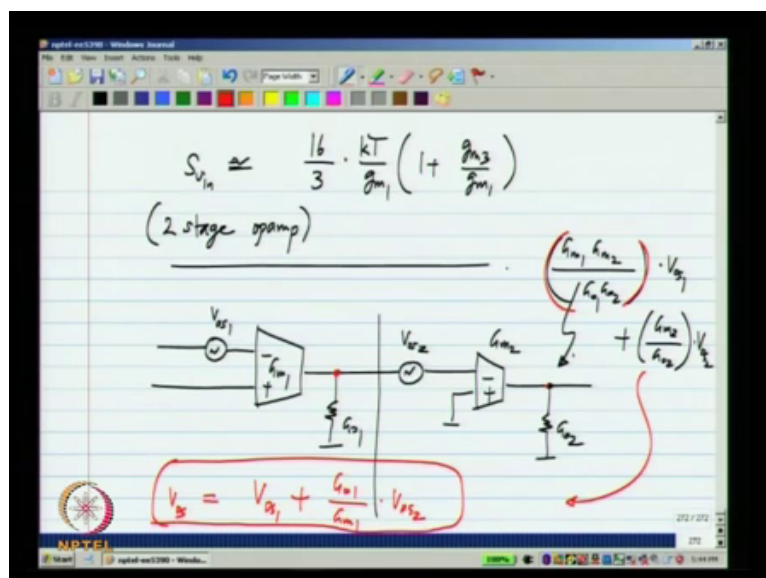 nptel-ee5390 - Windows Journal
File Edit View Insert Actions Tools Help
Page Width
B I
S_{v_{in}} ≅ 16/3 · kT/g_{m1} (1 + g_{m3}/g_{m1})
(2 stage opamp)
(G_{m1} G_{m2} / G_{o1} G_{o2}) · V_{os1}
+ (G_{m2}/G_{o2}) · V_{os2}
V_{os1} V_{os2} G_{m2}
- G_{m1} + - +
G_{o1} G_{o2}
V_{os} = V_{os1} + G_{o1}/G_{m1} · V_{os2}
NPTEL
272 / 272
272
Start nptel-ee5390 - Windo... 100% 5:44 PM